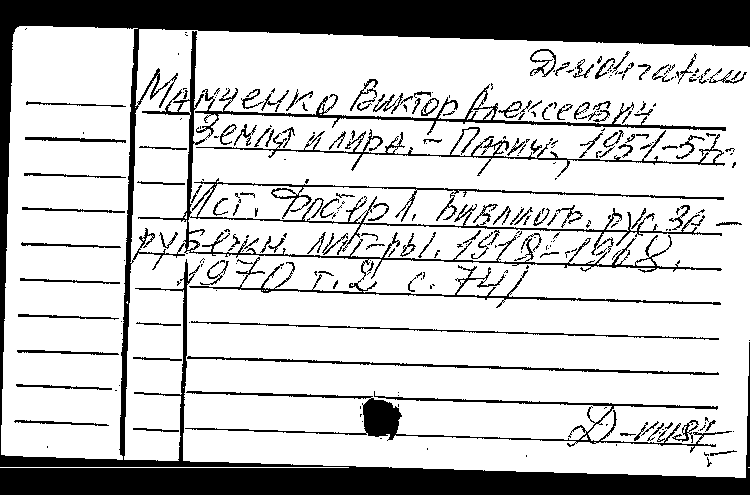 Desideratum
Мамченко, Виктор Алексеевич
Земля и лира. – Париж, 1951.-57с.
Ист. Фостер Л. Библиогр. рус. за-
рубежн. лит-ры. 1918-1968.
1970 т.2 с. 741